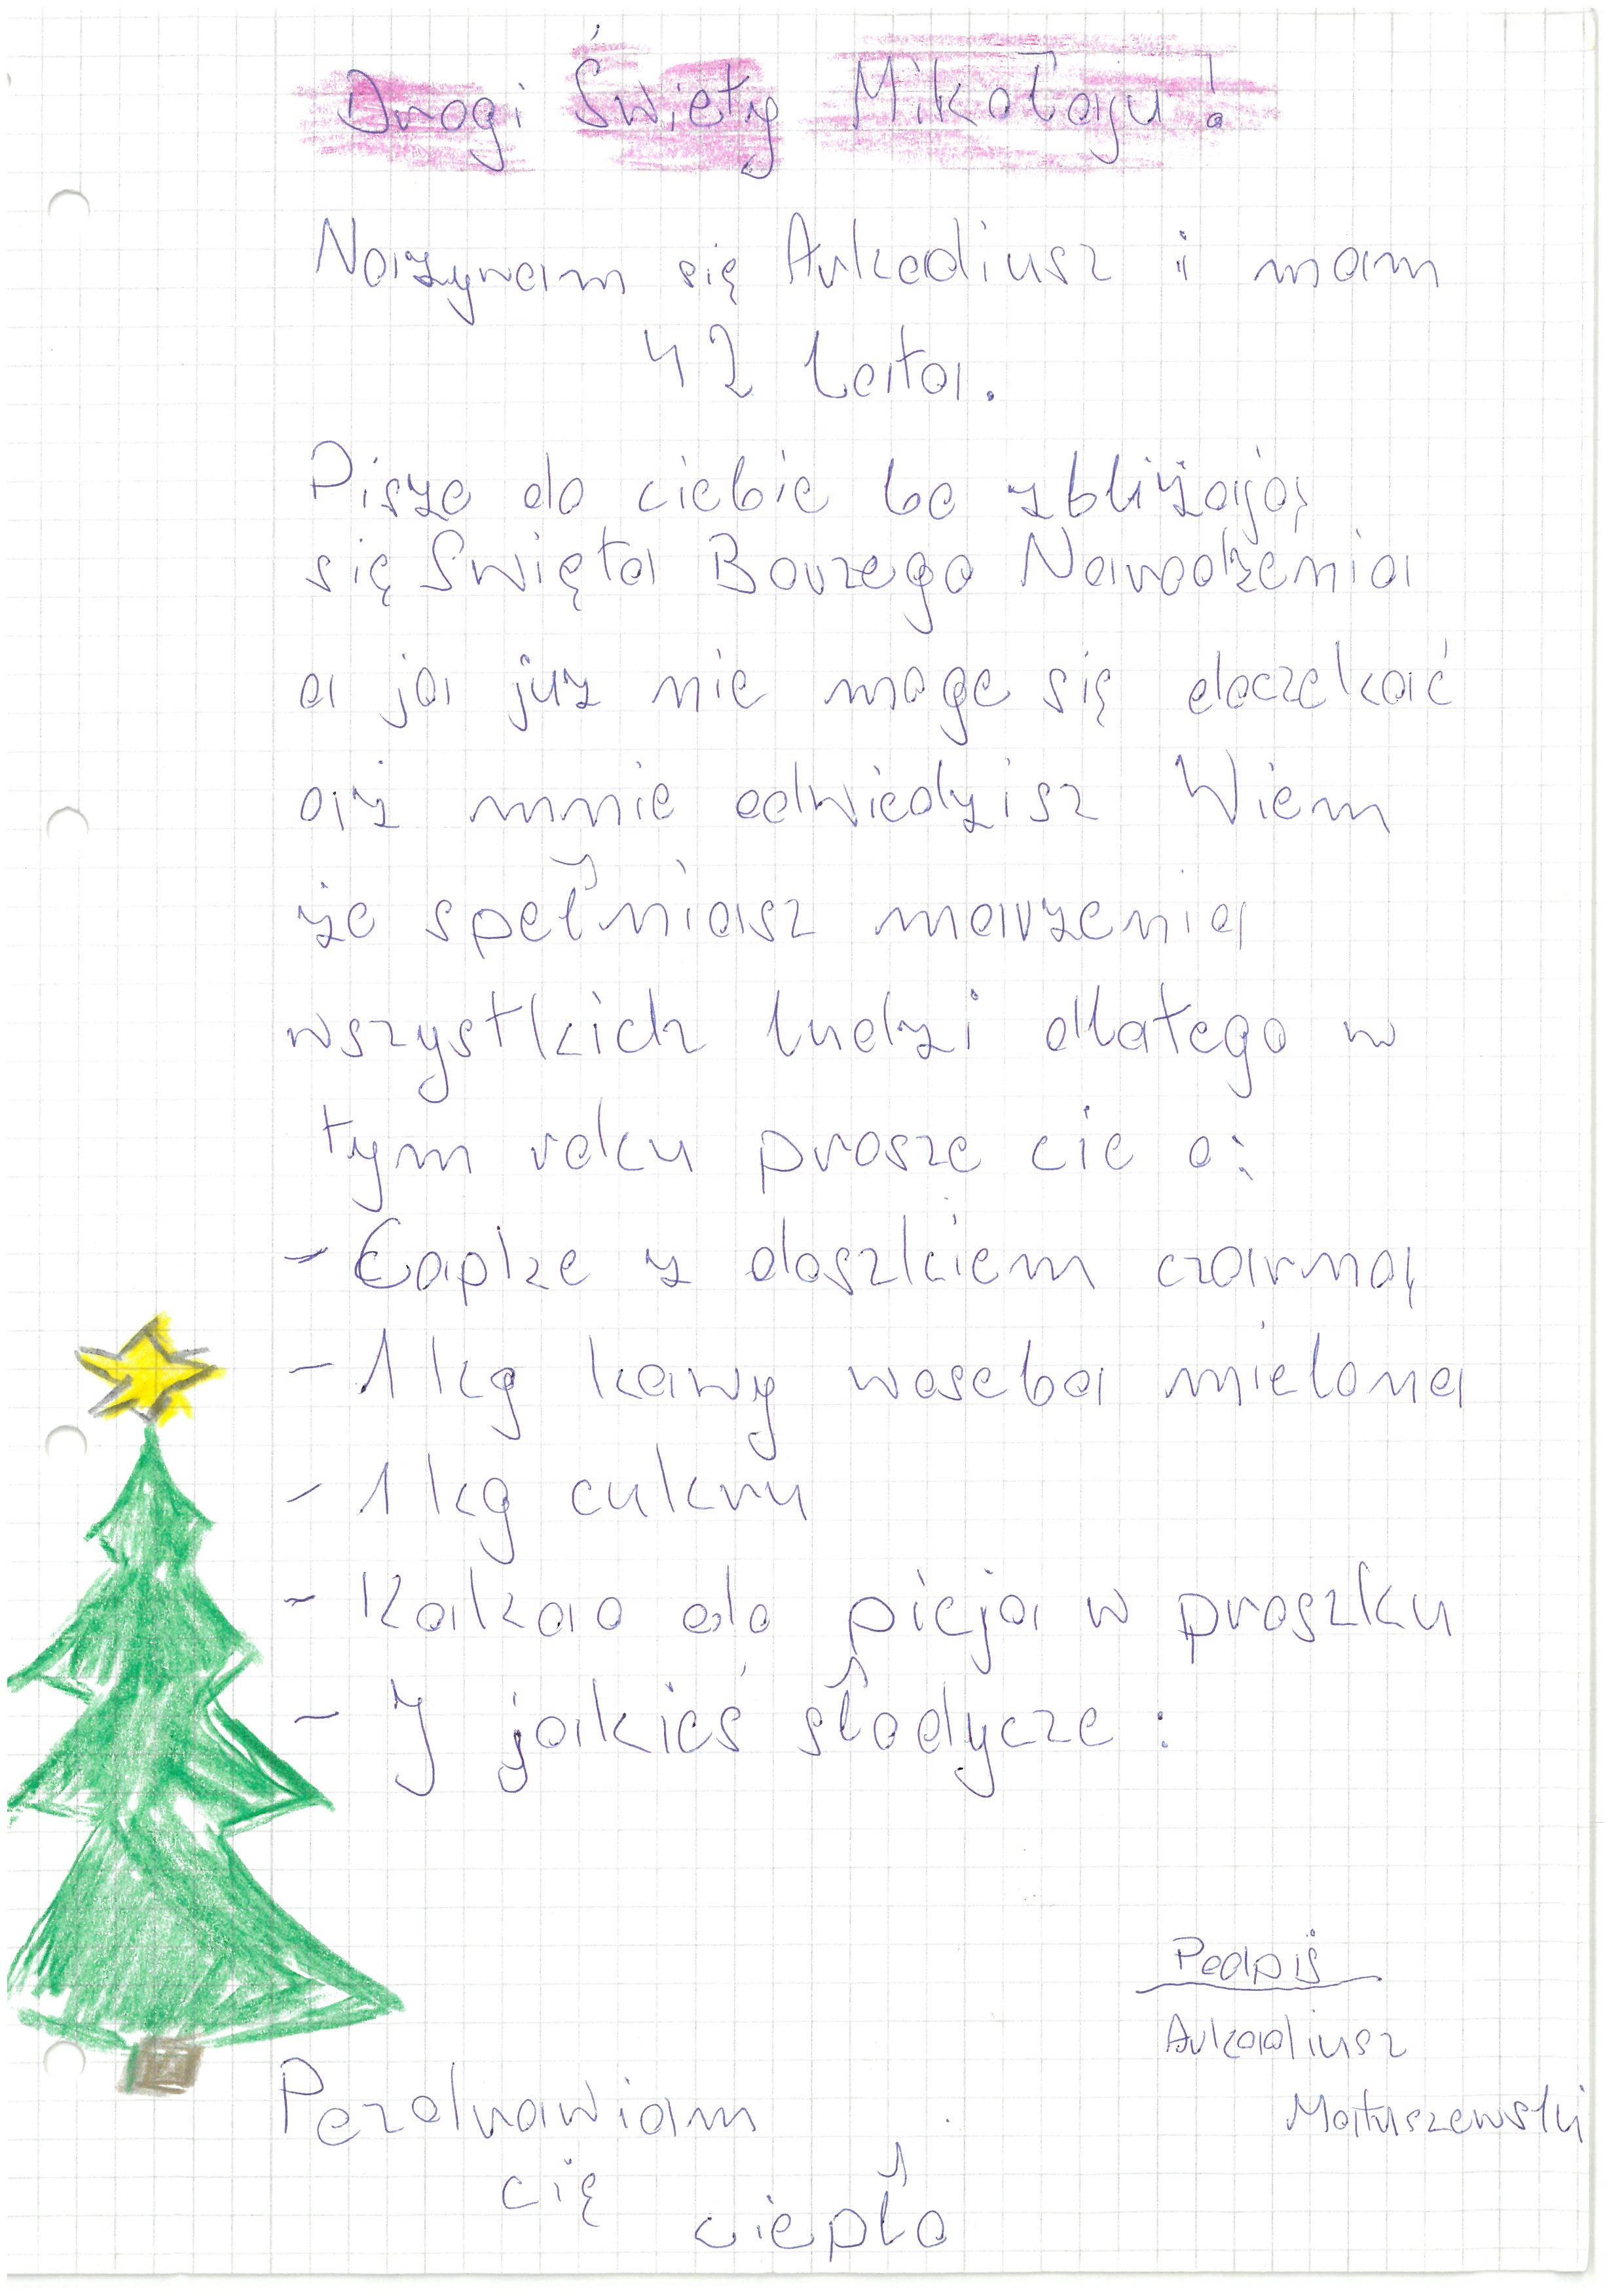 Drogi Święty Mikołaju!
Nazywam się Arkadiusz i mam
42 lata.
Pisze do ciebie bo zbliżają
się Święta Borzego Narodzenia
a ja już nie moge się doczekać
aż mnie odwiedzisz Wiem
że spełniasz marzenia
wszystkich ludzi dlatego w
tym roku prosze cie o:
- Capke z doszkiem czarną
- 1 kg kawy woseba mielona
- 1 kg cukru
- Kakao do picja w proszku
- I jakieś słodycze :
Podpiś
Arkadiusz
Matuszewski
Pozdrawiam
cię
ciepło